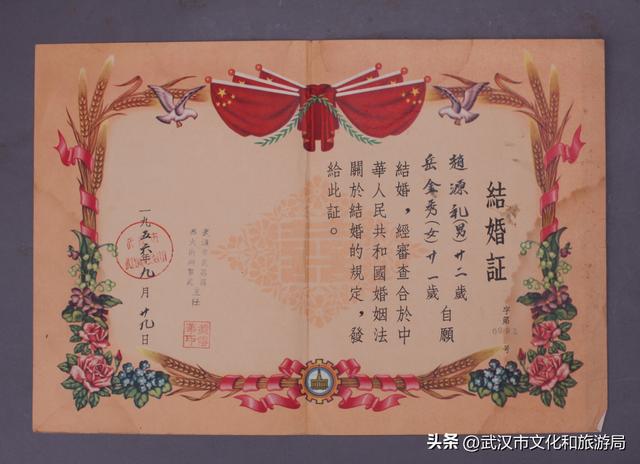 結婚証
字第
號
趙源礼(男)廿二歲
岳金秀(女)廿一歲
自願
結婚，經審查合於中
華人民共和國婚姻法
關於結婚的規定，發
給此証。
主任
一九五六年九月廿九日
头条@武汉市文化和旅游局